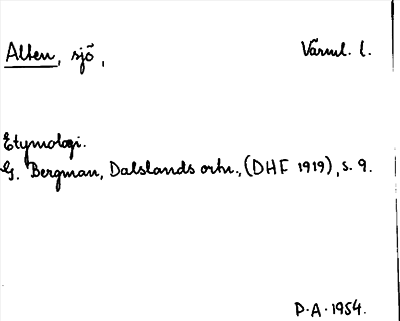 Alten, sjö, Värml. l.
Etymologi.
G. Bergman, Dalslands ortn., (DHF 1919), s. 9.
P.A. 1954.